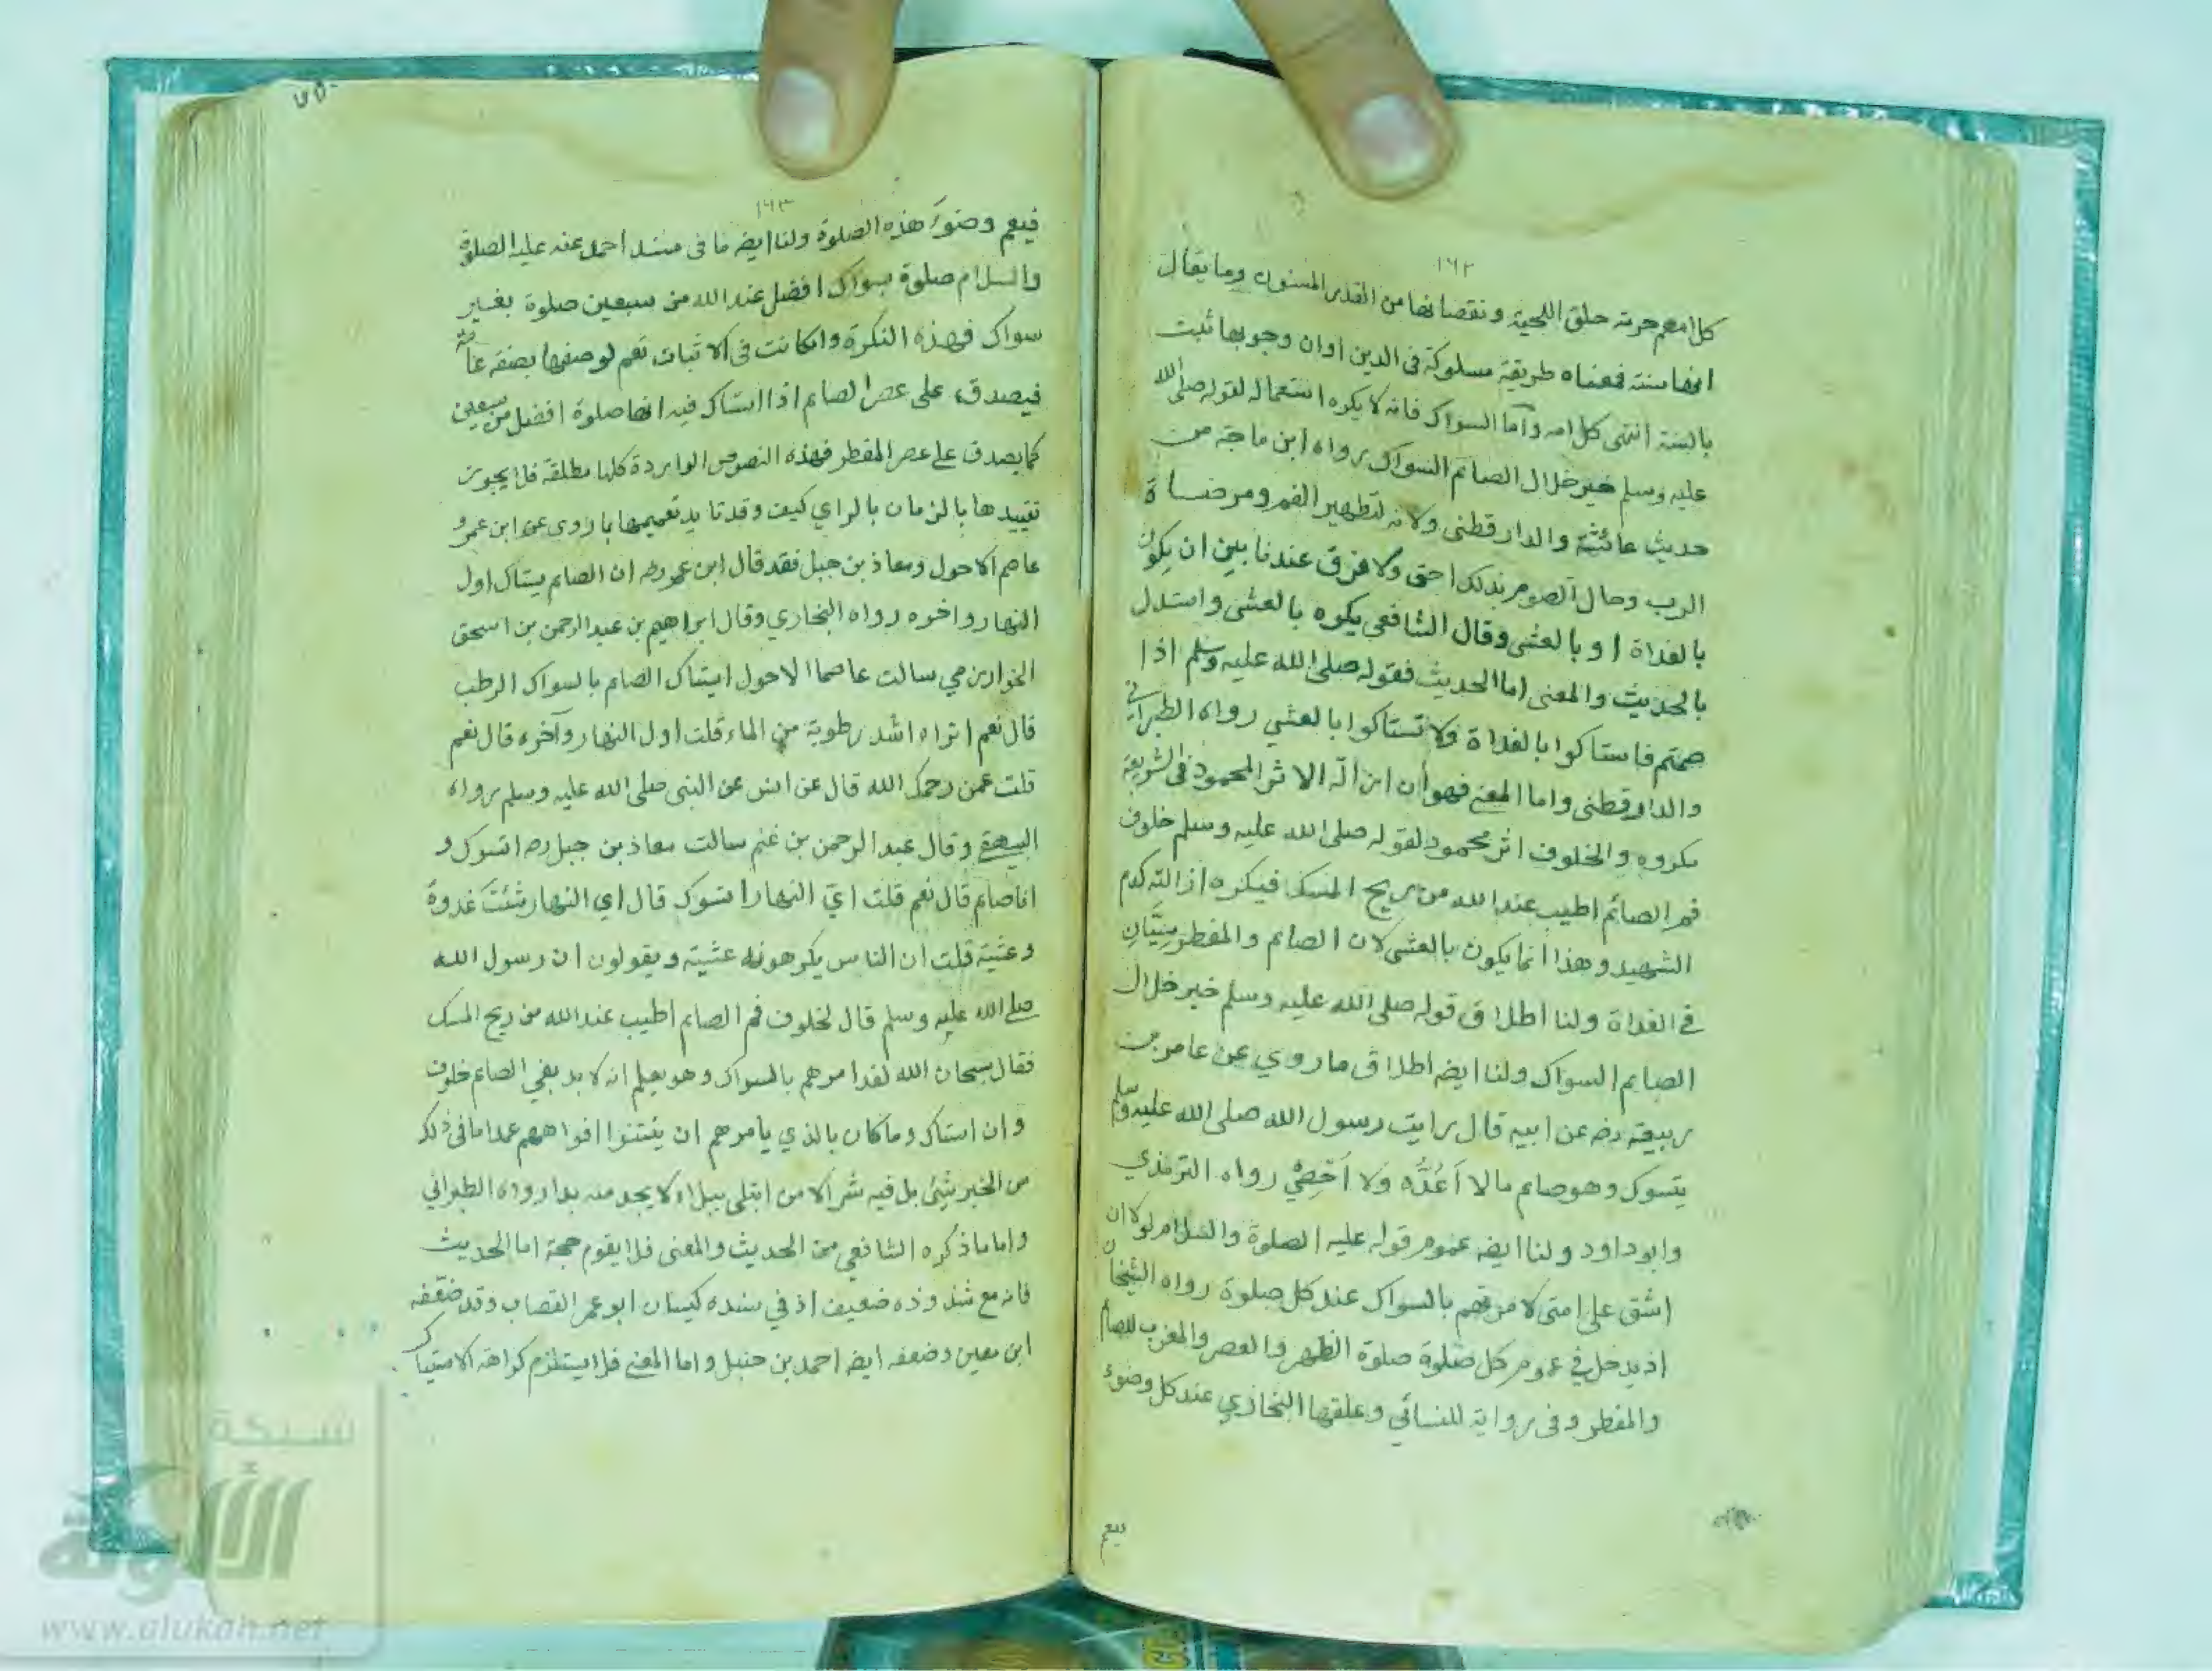 ١٦٢
كلامهم حرمة حلق اللحية ونقصانها من القدر المسنون وما يقال
انها سنة فمعناه طريقة مسلوكة في الدين اوان وجوبها ثبت
بالسنة انتهى كلامه واما السواك فانه لا يكره استعماله لقوله صلى الله
عليه وسلم خير خلال الصائم السواك رواه ابن ماجة من
حديث عائشة والدارقطنى ولانه لتطهير الفم ومرضاة
الرب وحال الصوم بذلك احق ولا فرق عندنا بين ان يكون
بالغداة او بالعشى وقال الشافعي يكره بالعشى واستدل
بالحديث والمعنى اما الحديث فقوله صلى الله عليه وسلم اذا
صمتم فاستاكوا بالغداة ولا تستاكوا بالعشي رواه الطبراني
والدارقطنى واما المعنى فهو ان ازالة الاثر المحمود في الشريعة
مكروه والخلوف اثر محمود لقوله صلى الله عليه وسلم خلوف
فم الصائم اطيب عند الله من ريح المسك فيكره ازالته كدم
الشهيد وهذا انما يكون بالعشى لان الصائم والمفطر سيّان
في الغداة ولنا اطلاق قوله صلى الله عليه وسلم خير خلال
الصايم السواك ولنا ايضه اطلاق ما روي عن عامر بن
ربيعة رضه عن ابيه قال رايت رسول الله صلى الله عليه وسلم
يتسوك وهو صايم مالا اَعُدُّه ولا اُحْصِيْ رواه الترمذي
وابو داود ولنا ايضه عموم قوله عليه الصلوة والسلام لولا ان
اشق على امتى لامرتهم بالسواك عند كل صلوة رواه الشيخان
اذ يدخل في عموم كل صلوة صلوة الظهر والعصر والمغرب للصايم
والمفطر وفى رواية للنسائي وعلقها البخاري عند كل وضوء
فيعم
١٦٣
فيعم وضوء هذه الصلوة ولنا ايضه ما فى مسند احمد عنه عليه الصلوة
والسلام صلوة بسواك افضل عند الله من سبعين صلوة بغير
سواك فهذه النكرة وان كانت فى الاثبات تعم لوصفها بصفة عامة
فيصدق على عصر الصايم اذا استاك فيه انها صلوة افضل من سبعين
كما يصدق على عصر المفطر فهذه النصوص الواردة كلها مطلقة فلا يجوز
تقييدها بالزمان بالراي كيف وقد تايد تعميمها بما روى عن ابن عمر و
عاصم الاحول ومعاذ بن جبل فقد قال ابن عمر رضه ان الصايم يستاك اول
النهار واخره رواه البخاري وقال ابراهيم بن عبد الرحمن بن اسحق
الخوارزمي سالت عاصما الاحول ايستاك الصايم بالسواك الرطب
قال نعم اتراه اشد رطوبة من الماء قلت اول النهار وآخره قال نعم
قلت عمن رحمك الله قال عن انس عن النبى صلى الله عليه وسلم رواه
البيهقي وقال عبد الرحمن بن غنم سالت معاذ بن جبل رضه اتسوك و
انا صايم قال نعم قلت ايّ النهار اتسوك قال اي النهار شئتَ غدوةً
وعشية قلت ان الناس يكرهونه عشية ويقولون ان رسول الله
صلى الله عليه وسلم قال لخلوف فم الصايم اطيب عند الله من ريح المسك
فقال سبحان الله لقد امرهم بالسواك وهو يعلم انه لا بد بفي الصايم خلوف
وان استاك وما كان بالذي يامرهم ان ينتنوا افواههم عمدا ما فى ذلك
من الخير شيئ بل فيه شر الا من ابتلى ببلاء لا يجد منه بدا رواه الطبراني
واما ما ذكره الشافعي من الحديث والمعنى فلا يقوم حجة اما الحديث
فانه مع شذوذه ضعيف اذ في سنده كيسان ابو عمر القصاب وقد ضعّفه
ابن معين وضعفه ايضه احمد بن حنبل واما المعنى فلا يستلزم كراهة الاستياك
شبكة
الألوكة
www.alukah.net